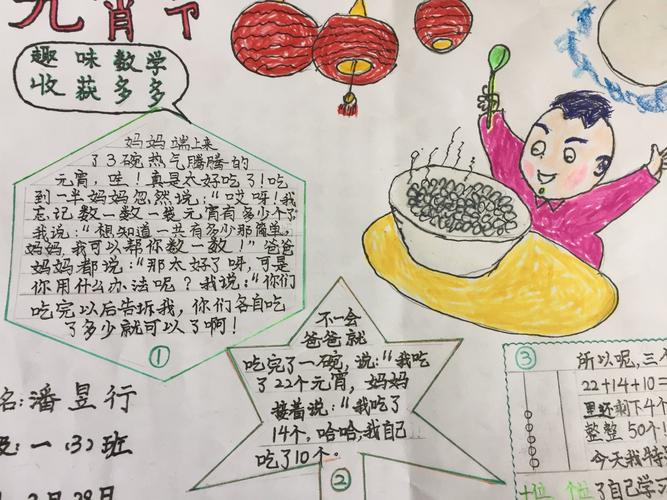 元宵节
趣味数学
收获多多
妈妈端上来
了3碗热气腾腾的
元宵，哇！真是太好吃了！吃
到一半妈妈忽然说："哎呀！我
忘记数一数一袋元宵有多少个了
我说："想知道一共有多少那简单，
妈妈，我可以帮你数一数！"爸爸
妈妈都说："那太好了呀，可是
你用什么办法呢？我说："你们
吃完以后告拆我，你们各自吃
了多少就可以了啊！
①
不一会
爸爸就
吃完了一碗，说："我吃
了22个元宵，妈妈
接着说："我吃了
14个，哈哈，我自己
吃了10个。
②
③
所以呢，三个
22+14+10=
里还剩下4个
整整50个！
今天我特
十位 个位
了自己学习
名：潘昱行
级：一（3）班
2月28日